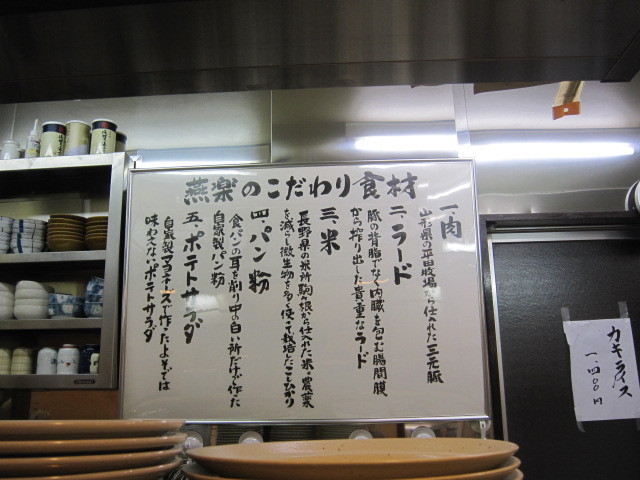 燕楽のこだわり食材
一、肉
山形県の平田牧場から仕入れた三元豚
二、ラード
豚の背脂でなく内臓を包む腸間膜
から搾り出した貴重なラード
三、米
長野県の米所駒ヶ根から仕入れた米。農薬
を減らし微生物を多く使って栽培したこしひかり
四、パン粉
食パンの耳を削り中の白い所だけで作た
自家製パン粉
五、ポテトサラダ
自家製マヨネーズで作たよそでは
味わえないポテトサラダ
カキフライ
一、四〇〇円